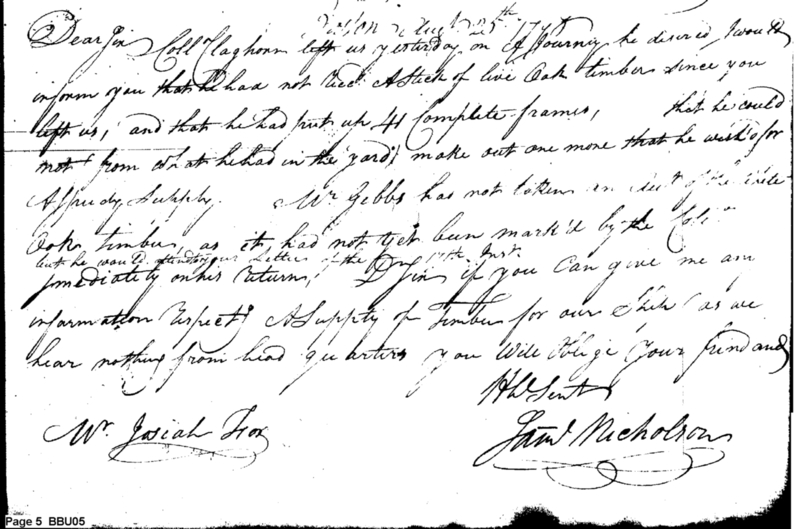 Boston Augt 25th
Dear Sir Coll Claghorn left us yesterday on A Journey he desired I would
inform you that he had not Recd A Stick of live Oak timber since you
left us, and that he had put up 41 Complete frames, that he could
not from what he had in the yard make out one more that he wish'd for
A speedy Supply. Mr Gibbs has not taken an of the White
Oak timber, as it had not yet been mark'd by the Coll
but he would attend to your Letter of the 17th Inst
immediately on his return, D Sir if you Can give me any
information respectg A Supply of Timber for our Ship as we
hear nothing from head quarters you Will Oblige Your frind and
Hbl Sevt
Mr Josiah Fox
Saml Nicholson
Page 5 BBU05